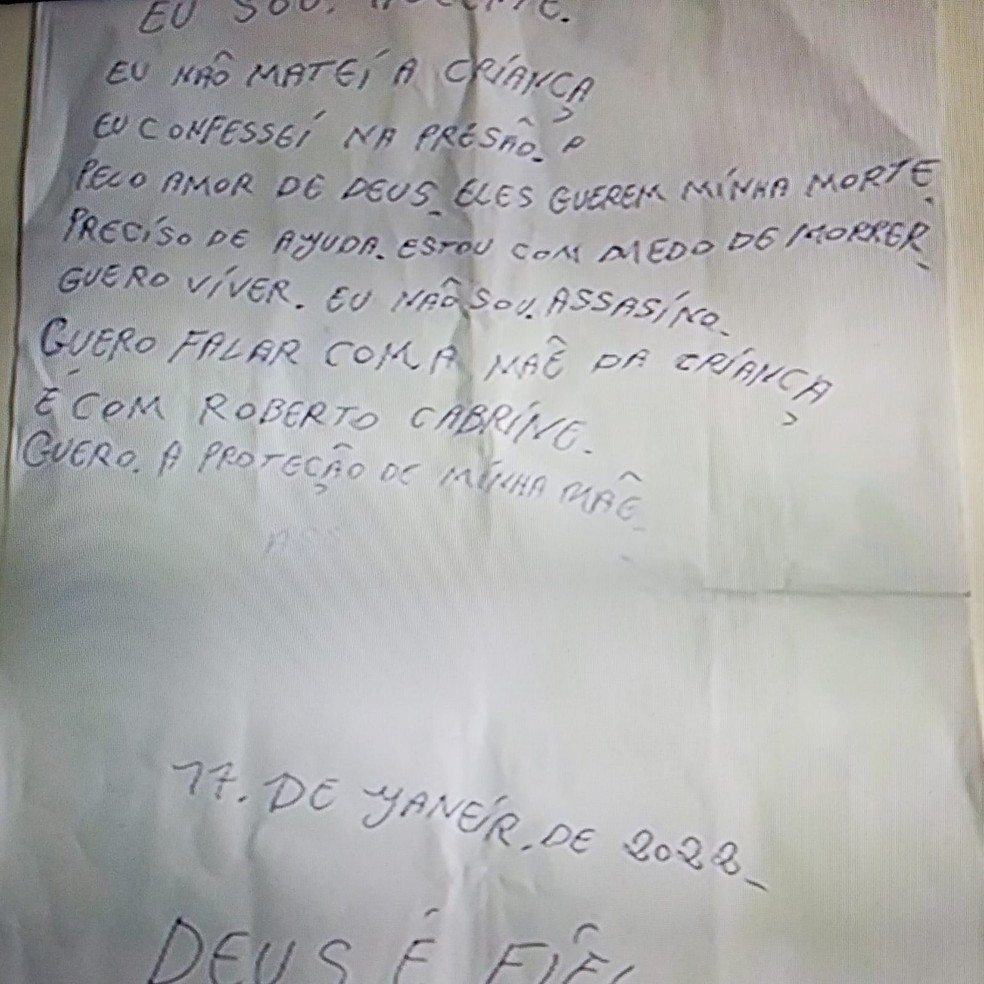 EU SOU. INOCENTE.
EU NÃO MATEÍ A CRÍANÇA
EU CONFESSEÍ NA PRESÃO. P
PELO AMOR DE DEUS. ELES GUEREM MÍNHA MORTE.
PRECÍSO DE AYUDA. ESTOU COM MEDO DE MORRER.
GUERO VÍVER. EU NÃO SOU. ASSASÍNO.
GUERO FALAR COM A MAÊ DA CRÍANÇA
E COM ROBERTO CABRÍNE.
GUERO. A PROTEÇÃO DE MÍNHA MAÊ.
ASS
17. DE YANEÍR. DE 2022_
DEUS É FÍEL